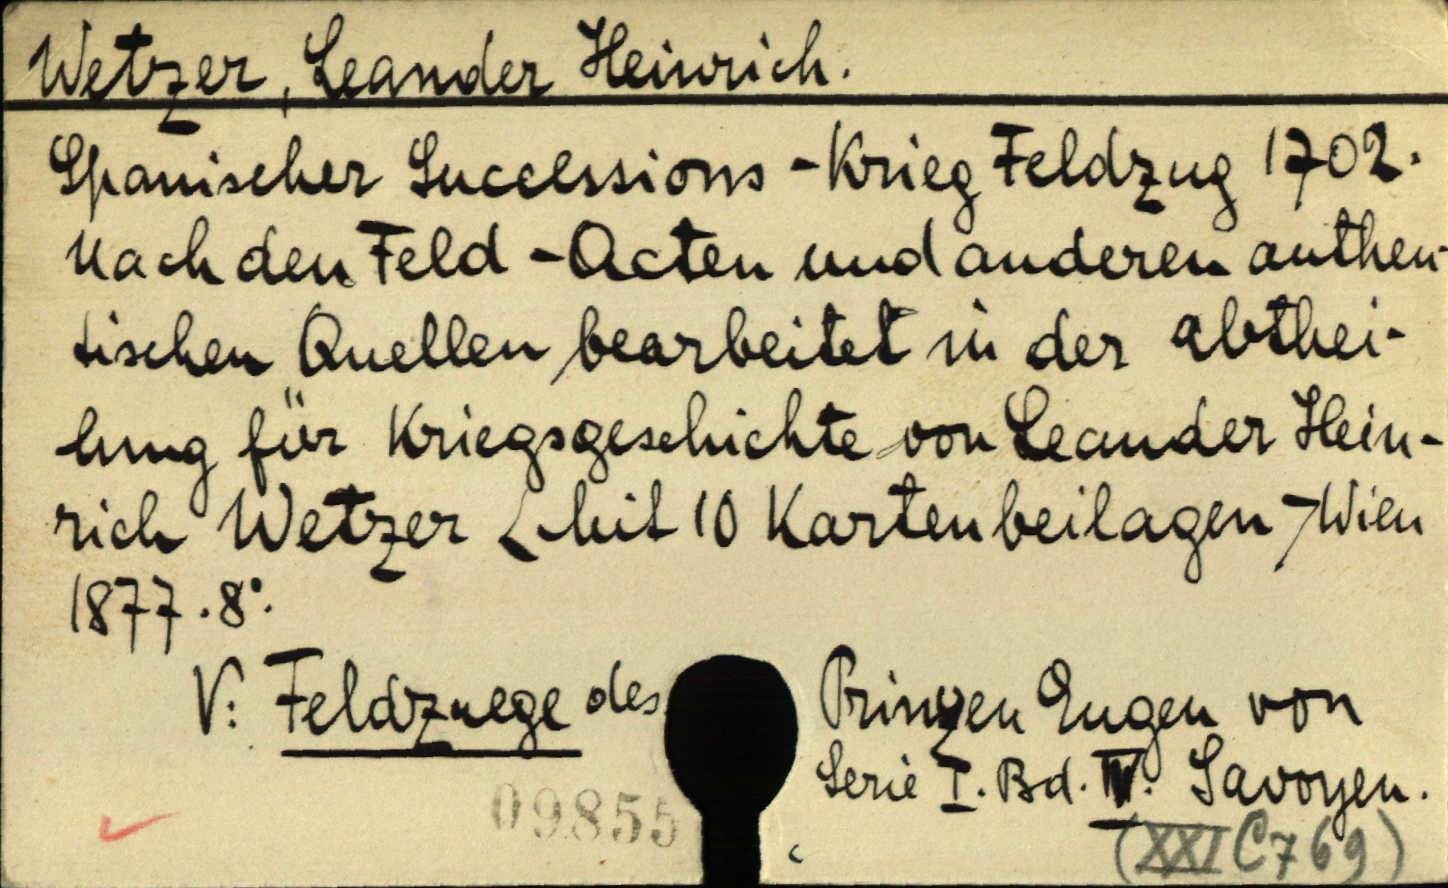 Wetzer, Leander Heinrich.
Spanischer Successions-Krieg Feldzug 1702.
Nach den Feld-Acten und anderen authen-
tischen Quellen bearbeitet in der Abthei-
lung für Kriegsgeschichte von Leander Hein-
rich Wetzer <Mit 10 Kartenbeilagen> Wien
1877. 8°.
V: Feldzuege des Prinzen Eugen von
Serie I. Bd. IV. Savoyen.
09855
(XXI C 769)